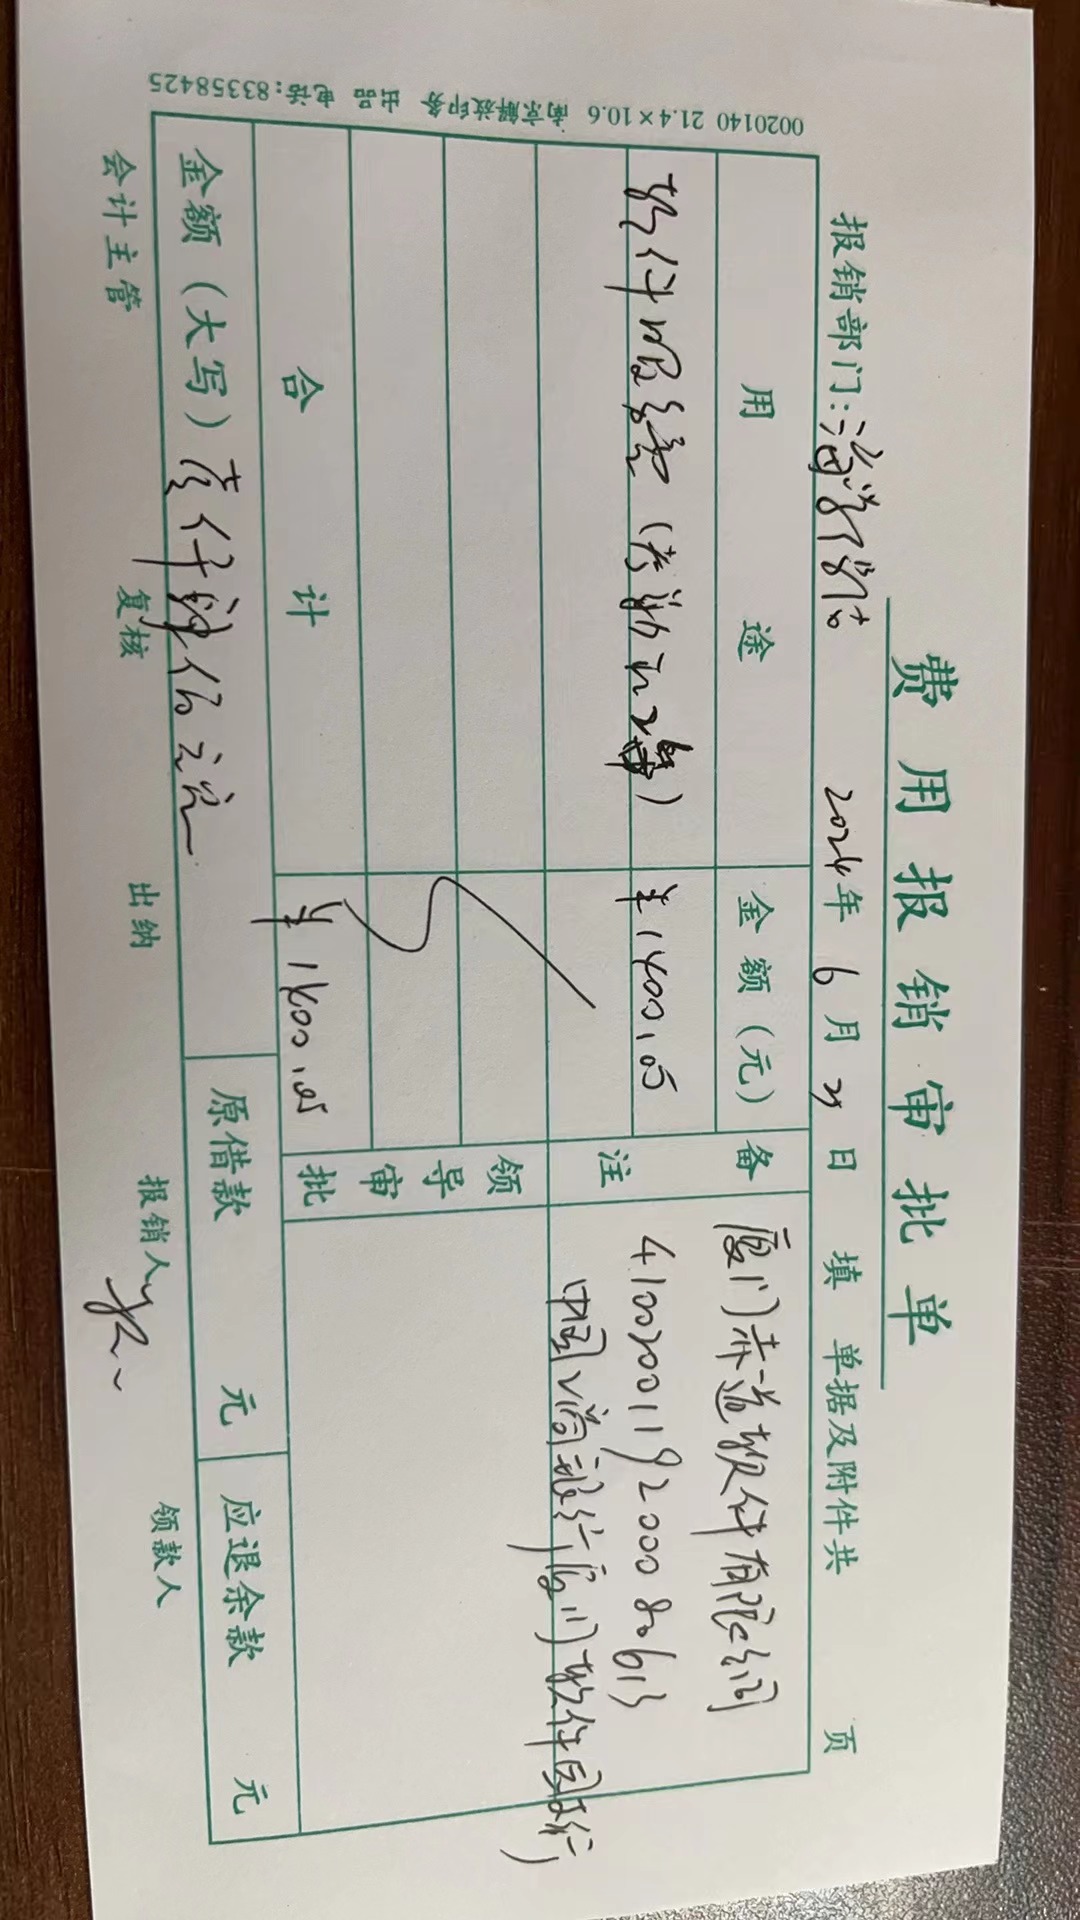 费用报销审批单
报销部门: 2024年6月25日 填 单据及附件共 页
用途 金额(元) 备注
软件服务 ¥1400.05 厦门赤道软件有限公司
4100200119200080613
中国工商银行厦门软件园支行
领导审批
合计 ¥1400.05
金额(大写)壹仟肆佰元 原借款 元 应退余款 元
会计主管 复核 出纳 报销人 领款人
0020140 21.4×10.6 南京解放印务 出品 电话:83358425